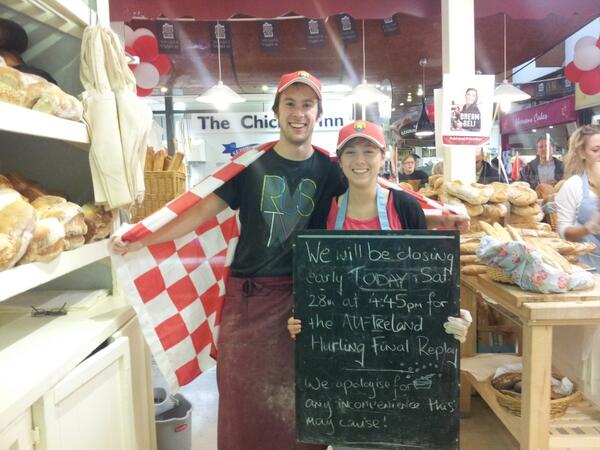 The Chicken Inn
DREAM
DELI
We will be closing
early TODAY: Sat
28th at 4:45pm for
the All-Ireland
Hurling Final Replay
We apologise for
any inconvenience this
may cause!